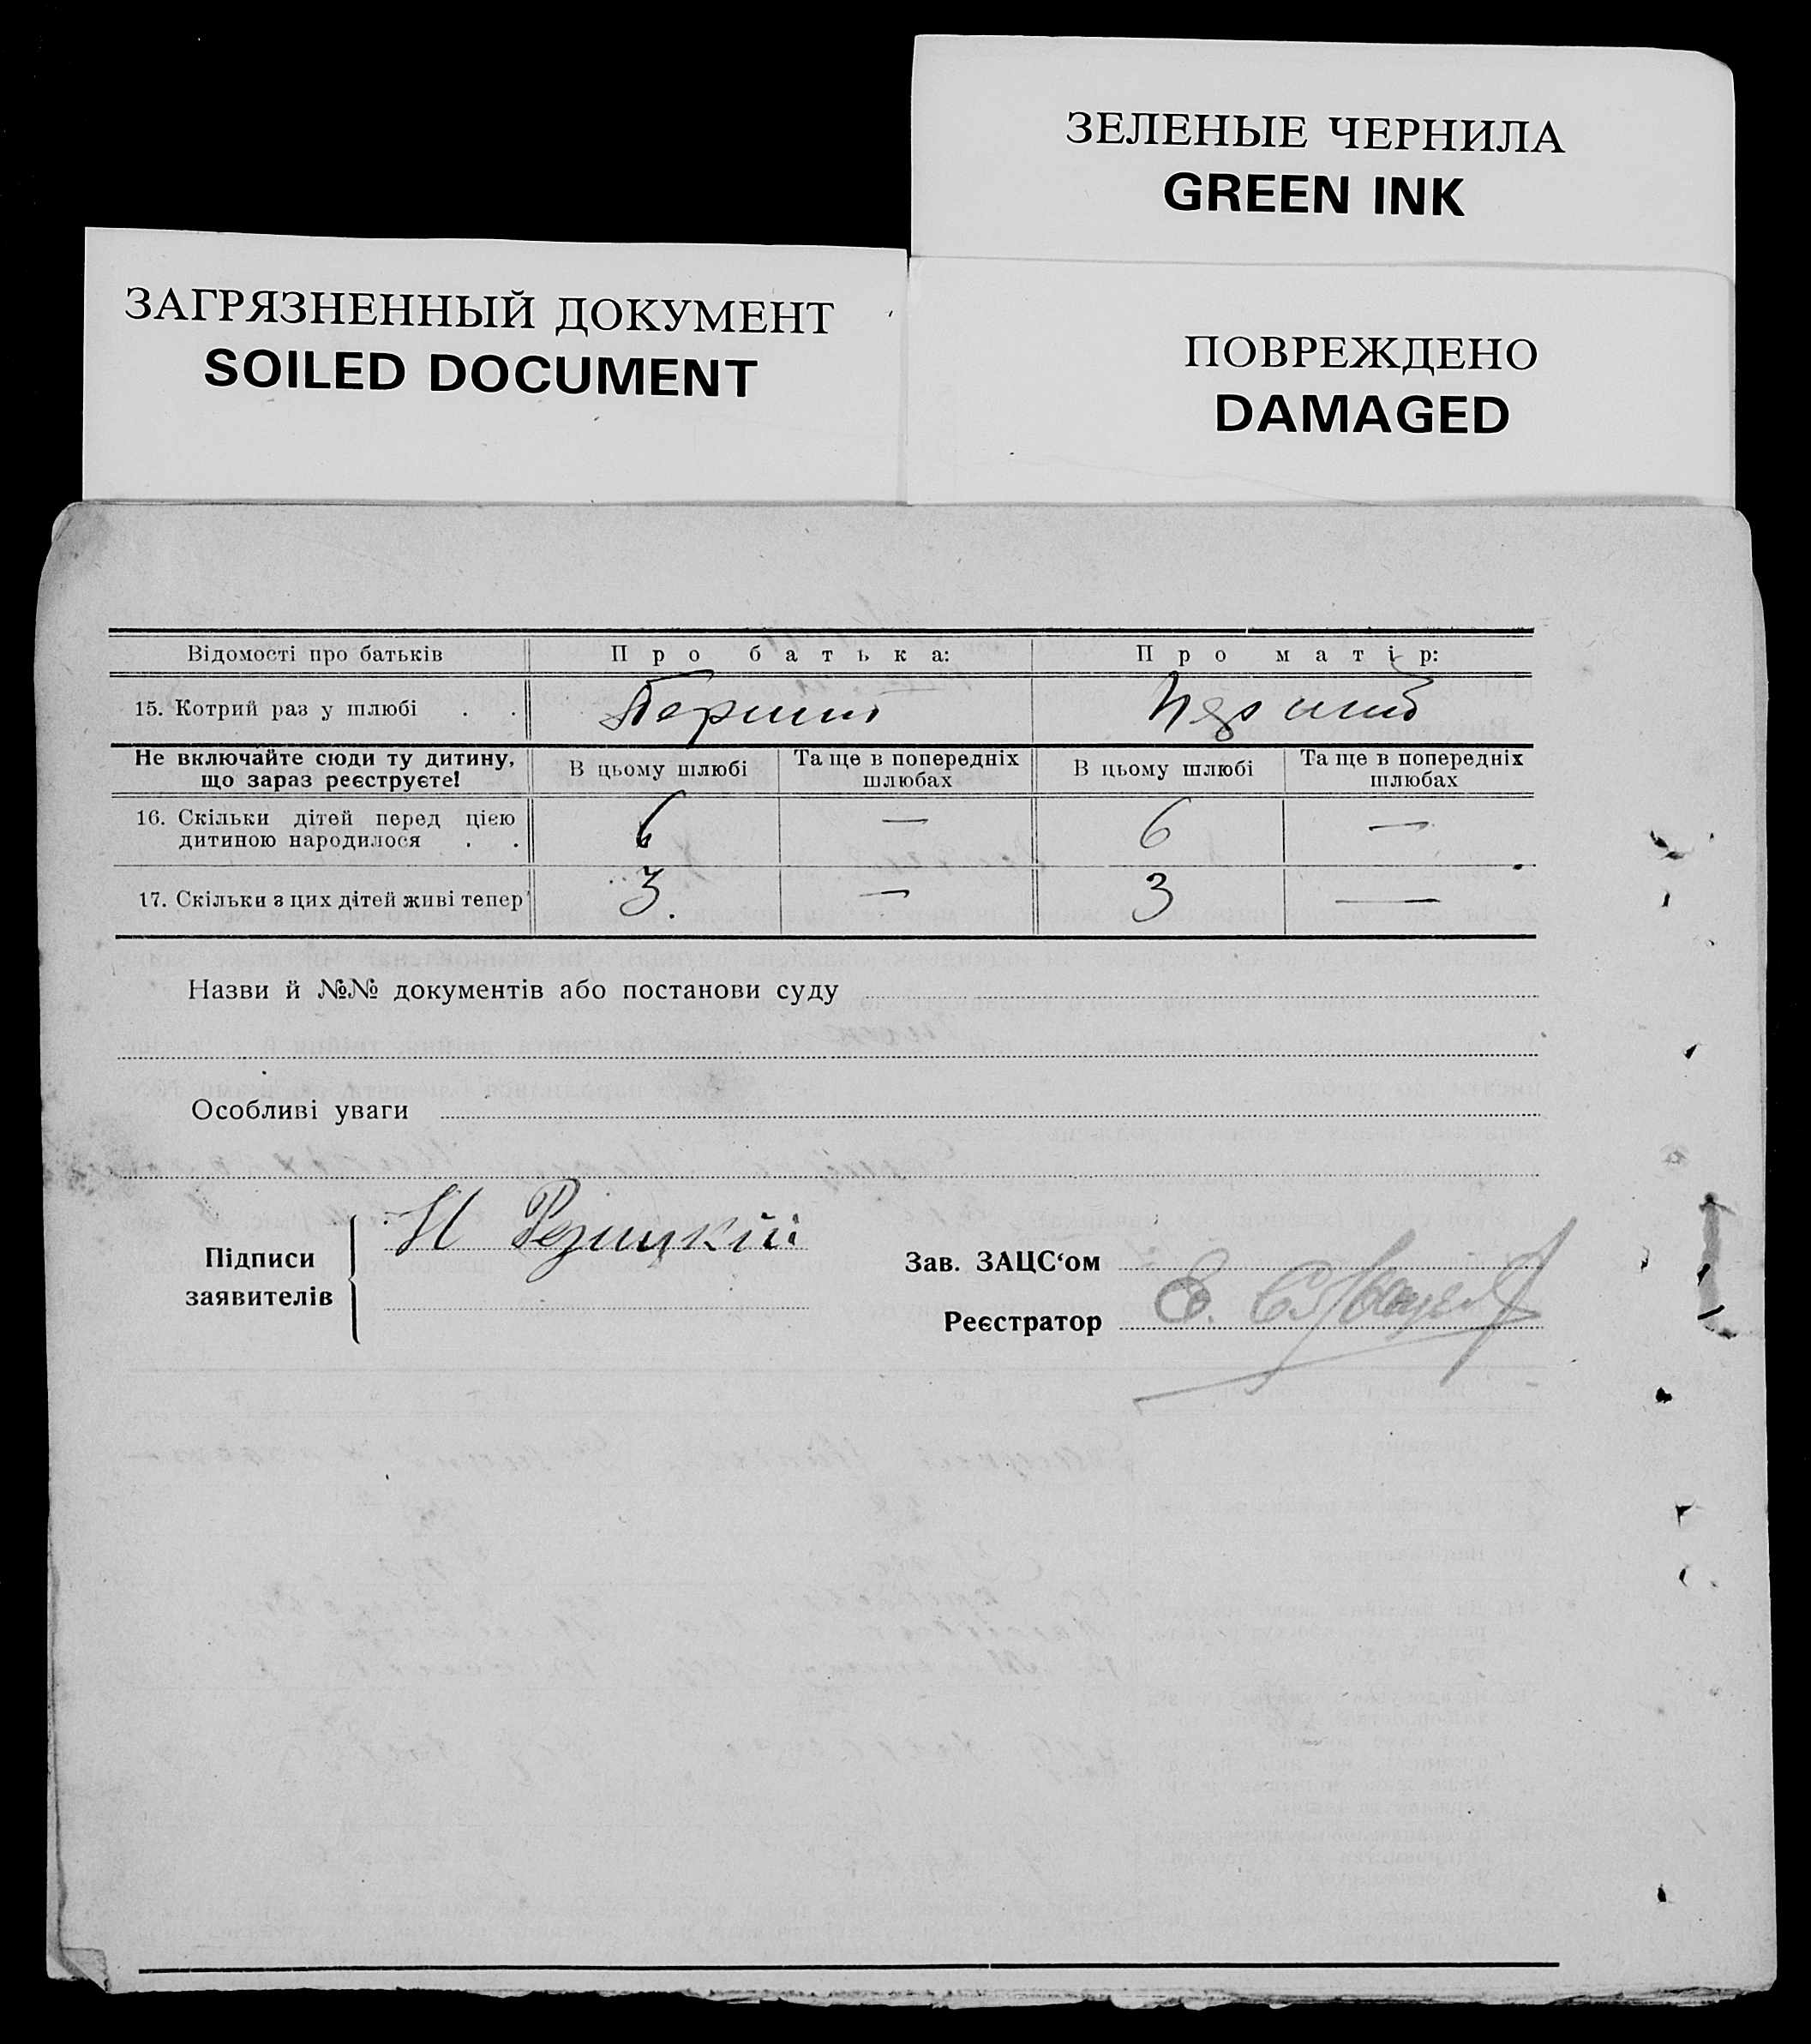 ЗЕЛЕНЫЕ ЧЕРНИЛА
GREEN INK
ЗАГРЯЗНЕННЫЙ ДОКУМЕНТ
SOILED DOCUMENT
ПОВРЕЖДЕНО
DAMAGED
Відомості про батьків Про батька: Про матір:
15. Котрий раз у шлюбі . . Перший Перший
Не включайте сюди ту дитину, що зараз реєструєте! В цьому шлюбі Та ще в попередніх шлюбах В цьому шлюбі Та ще в попередніх шлюбах
16. Скільки дітей перед цією дитиною народилося . . 6 — 6 —
17. Скільки з цих дітей живі тепер 3. — 3 —
Назви й №№ документів або постанови суду
Особливі уваги
Підписи заявителів
Н Резицкій
Зав. ЗАЦС‘ом
Реєстратор